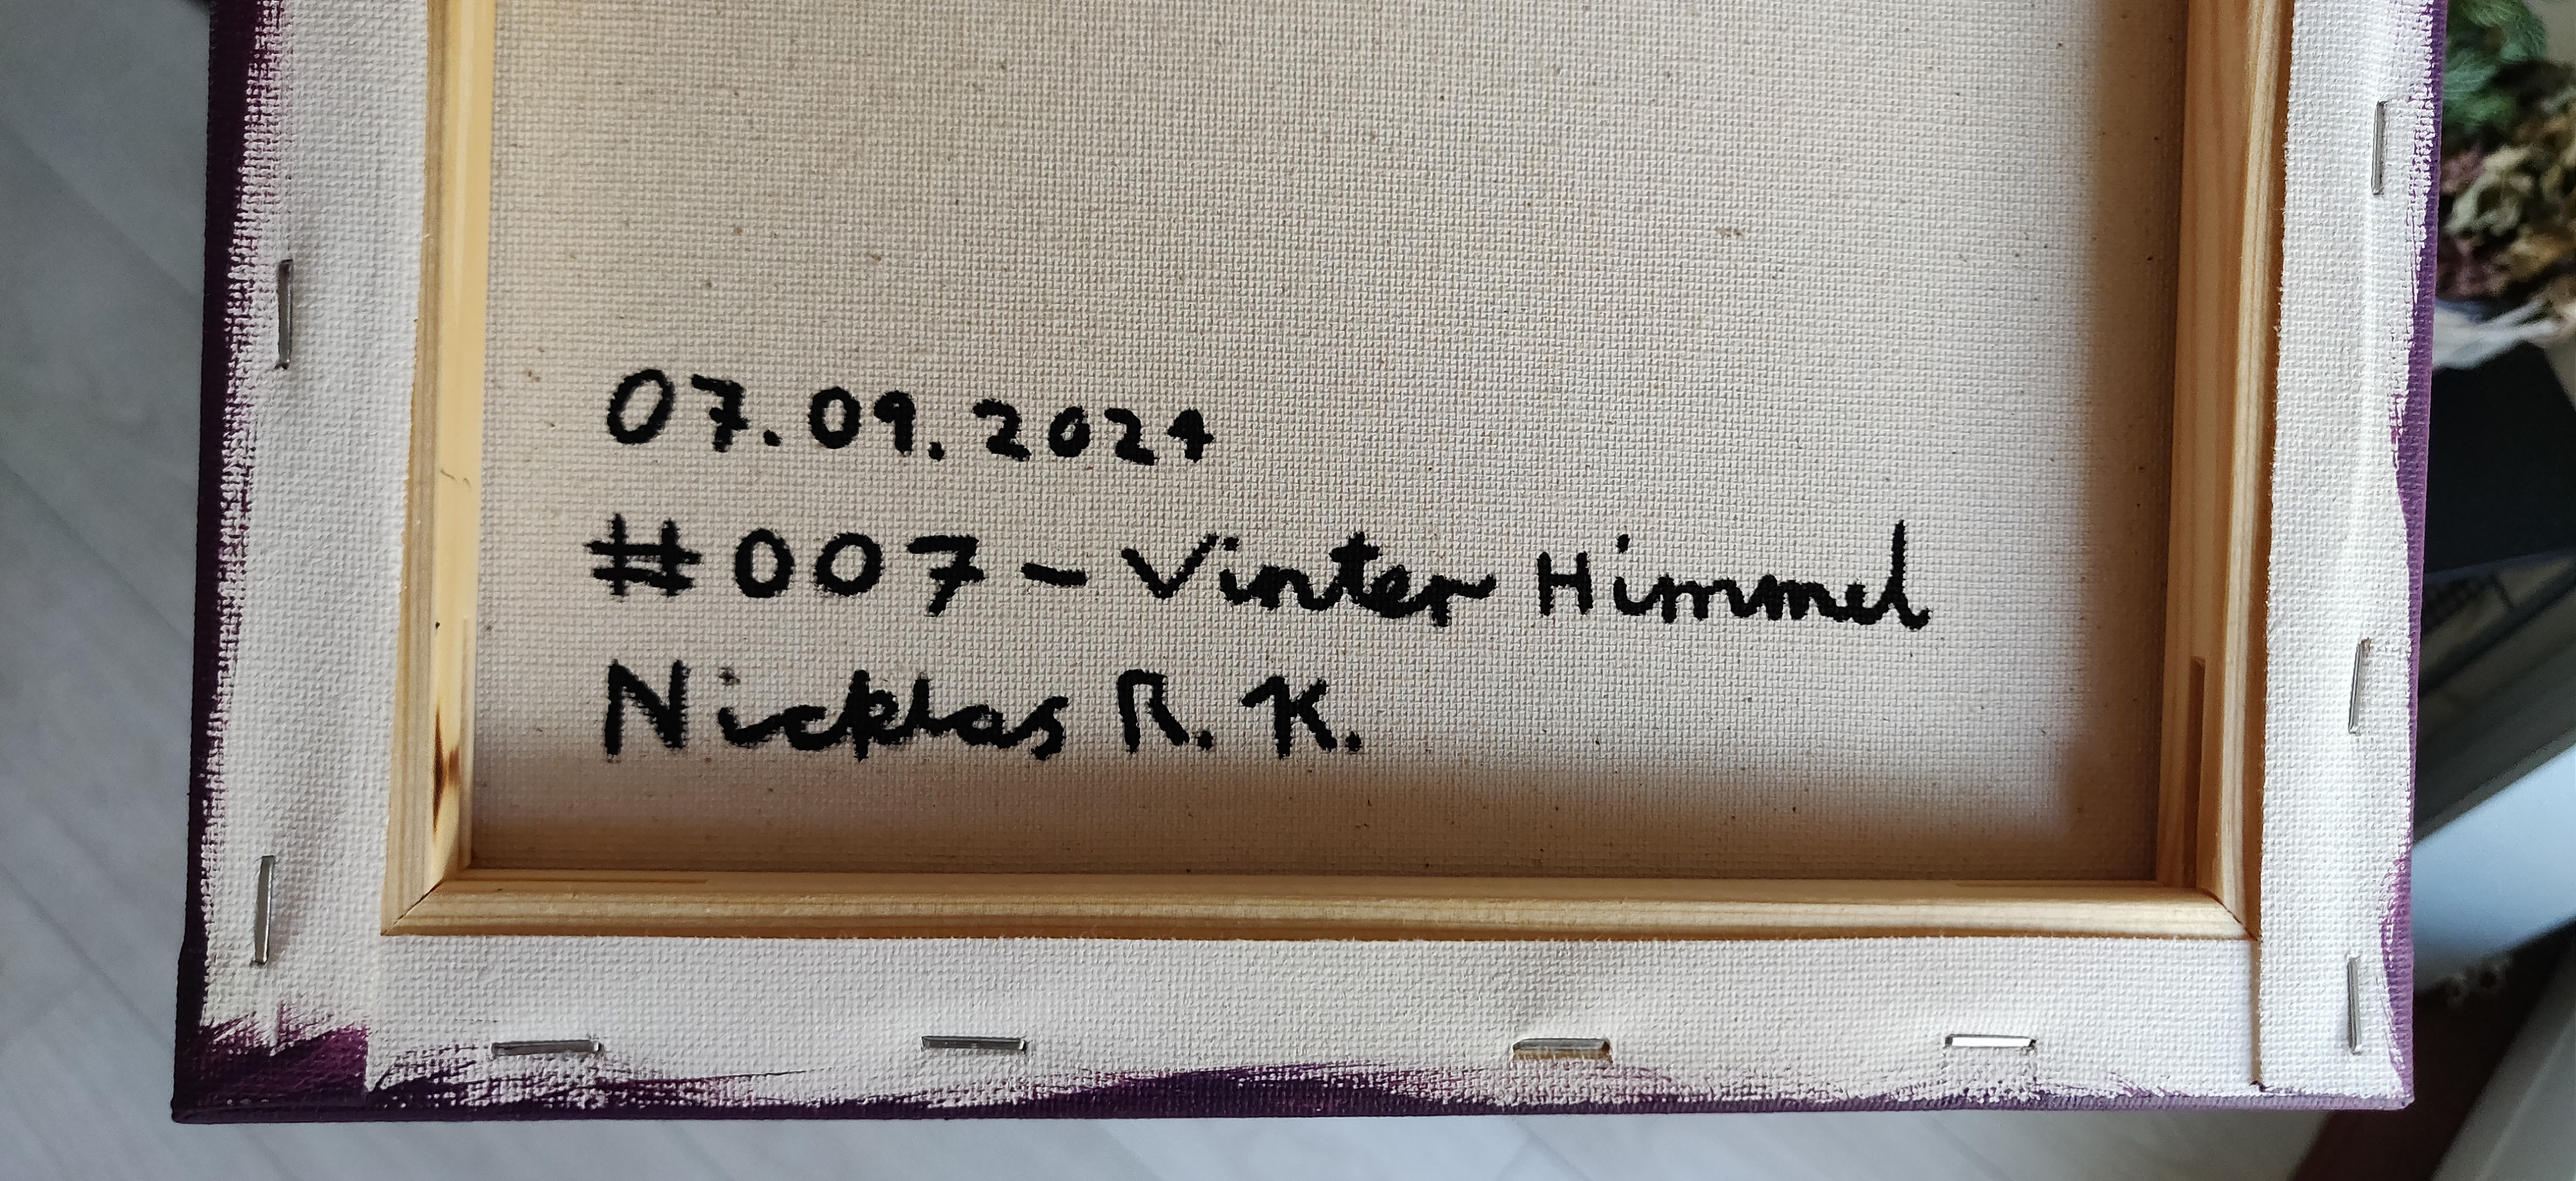 07.09.2024
#007 - Vinter Himmel
Nicklas R. K.